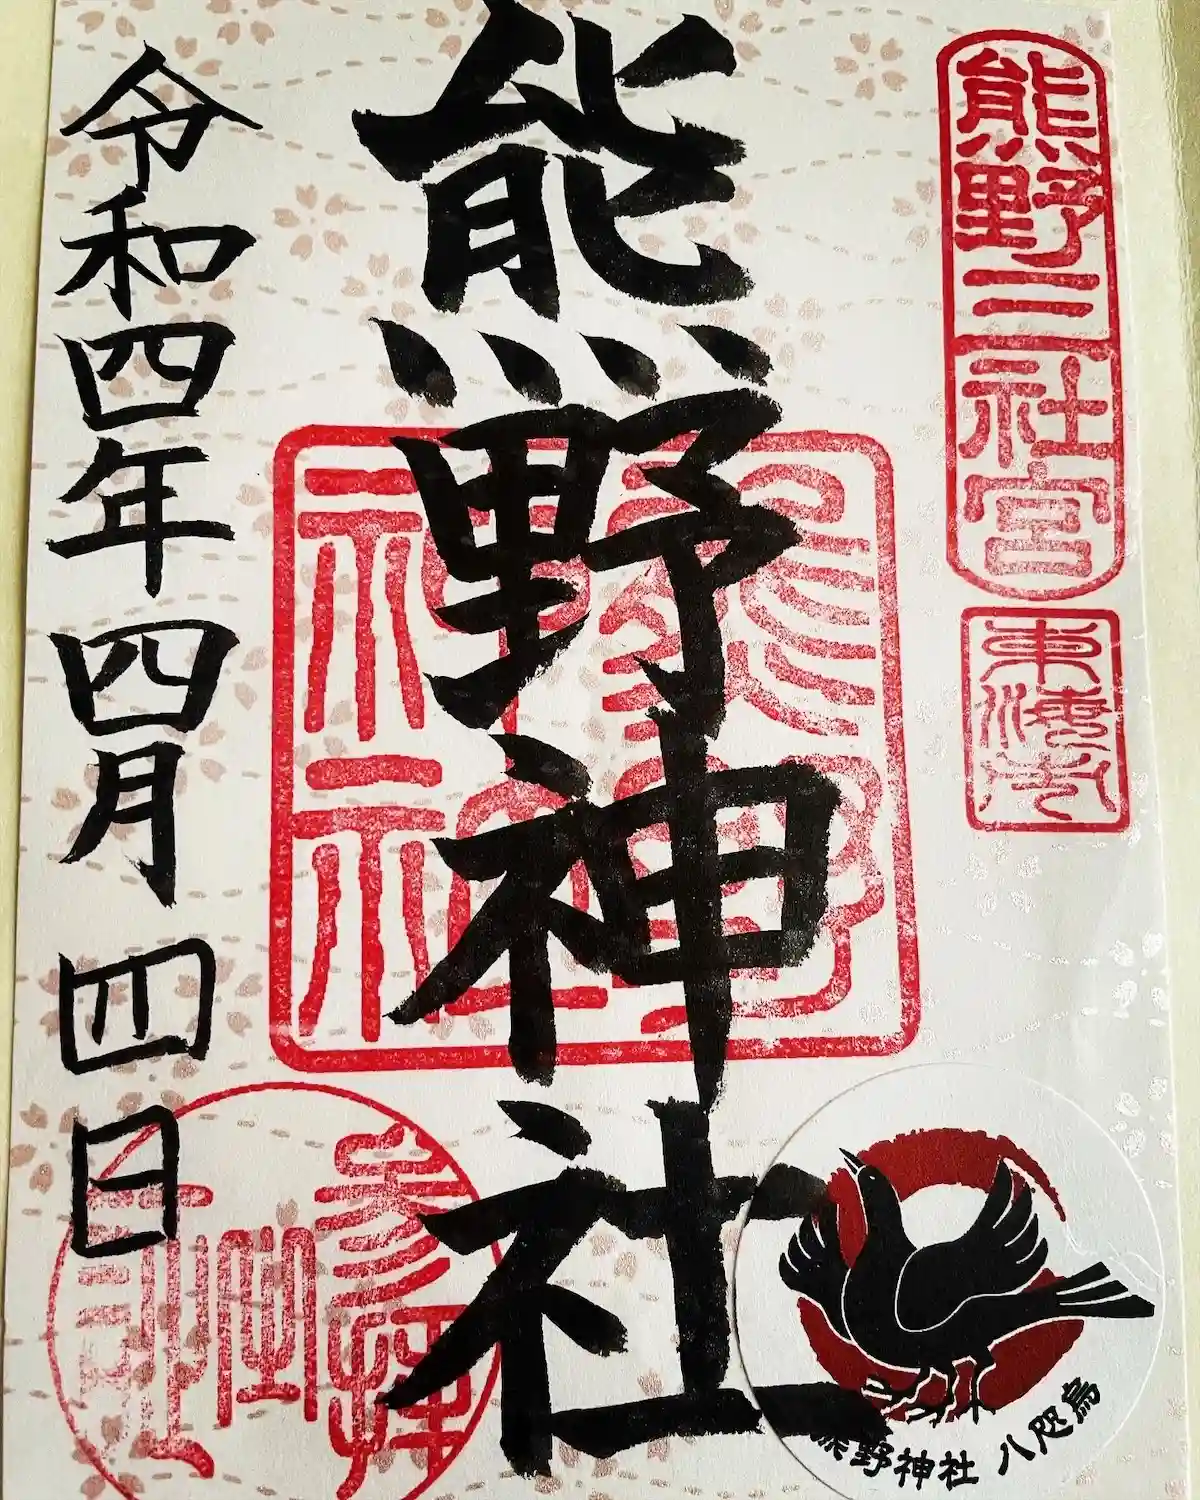 熊野三社宮
東海市
熊野神社
熊野神社
参拝
記
令和四年四月四日
熊野神社 八咫烏